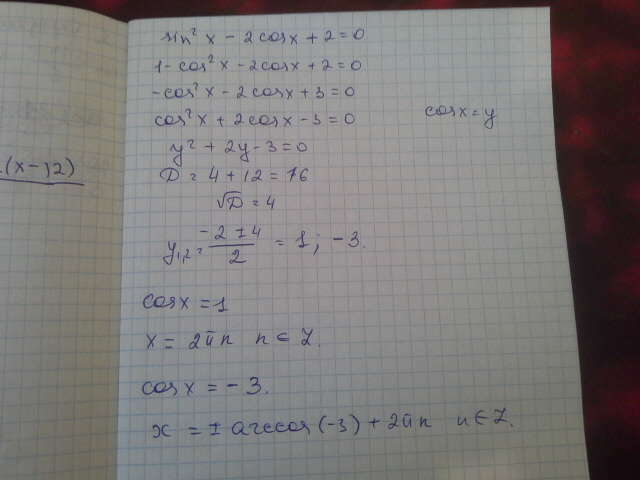 sin² x - 2cosx + 2 = 0
1 - cos² x - 2cosx + 2 = 0
-cos² x - 2cosx + 3 = 0
cos² x + 2cosx - 3 = 0
cosx = y
y² + 2y - 3 = 0
D = 4 + 12 = 16
√D = 4
y₁,₂ = (-2 ± 4)/2 = 1; -3.
cosx = 1
x = 2πn n ∈ Z.
cosx = -3.
x = ± arccos(-3) + 2πn n ∈ Z.
(x-12)